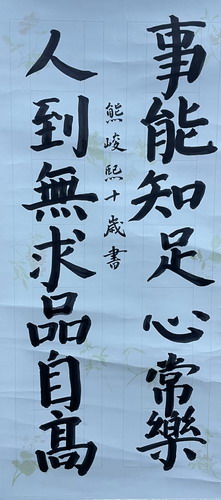 事能知足心常樂
人到無求品自高
熊峻熙十歲書